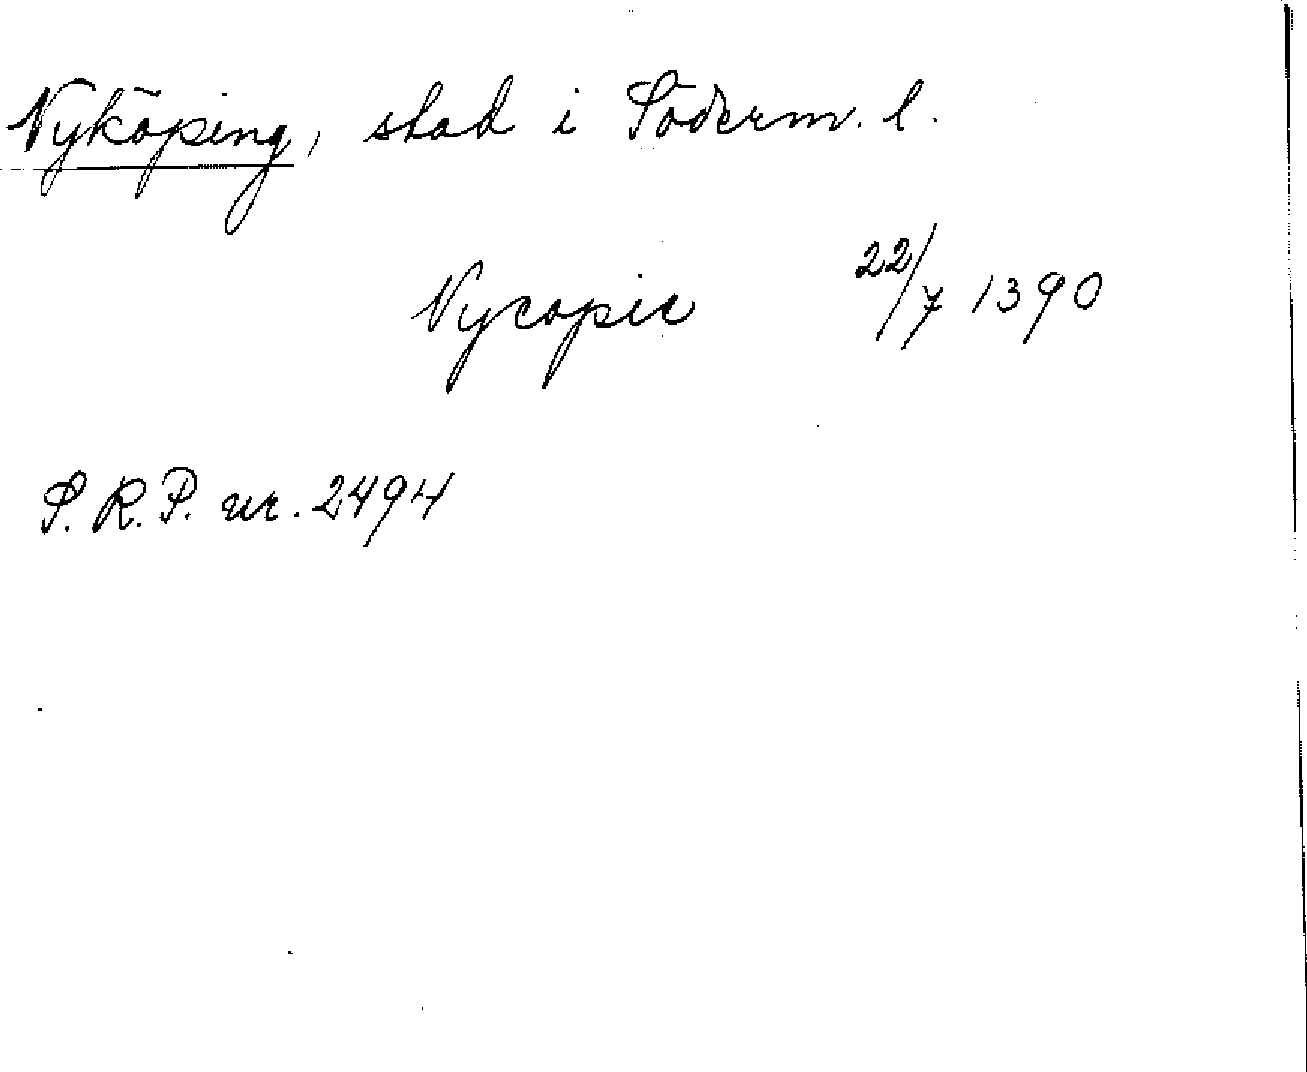 Nyköping, stad i Söderm. l.
Nycopie 22/7 1390
S. R. P. nr. 2494